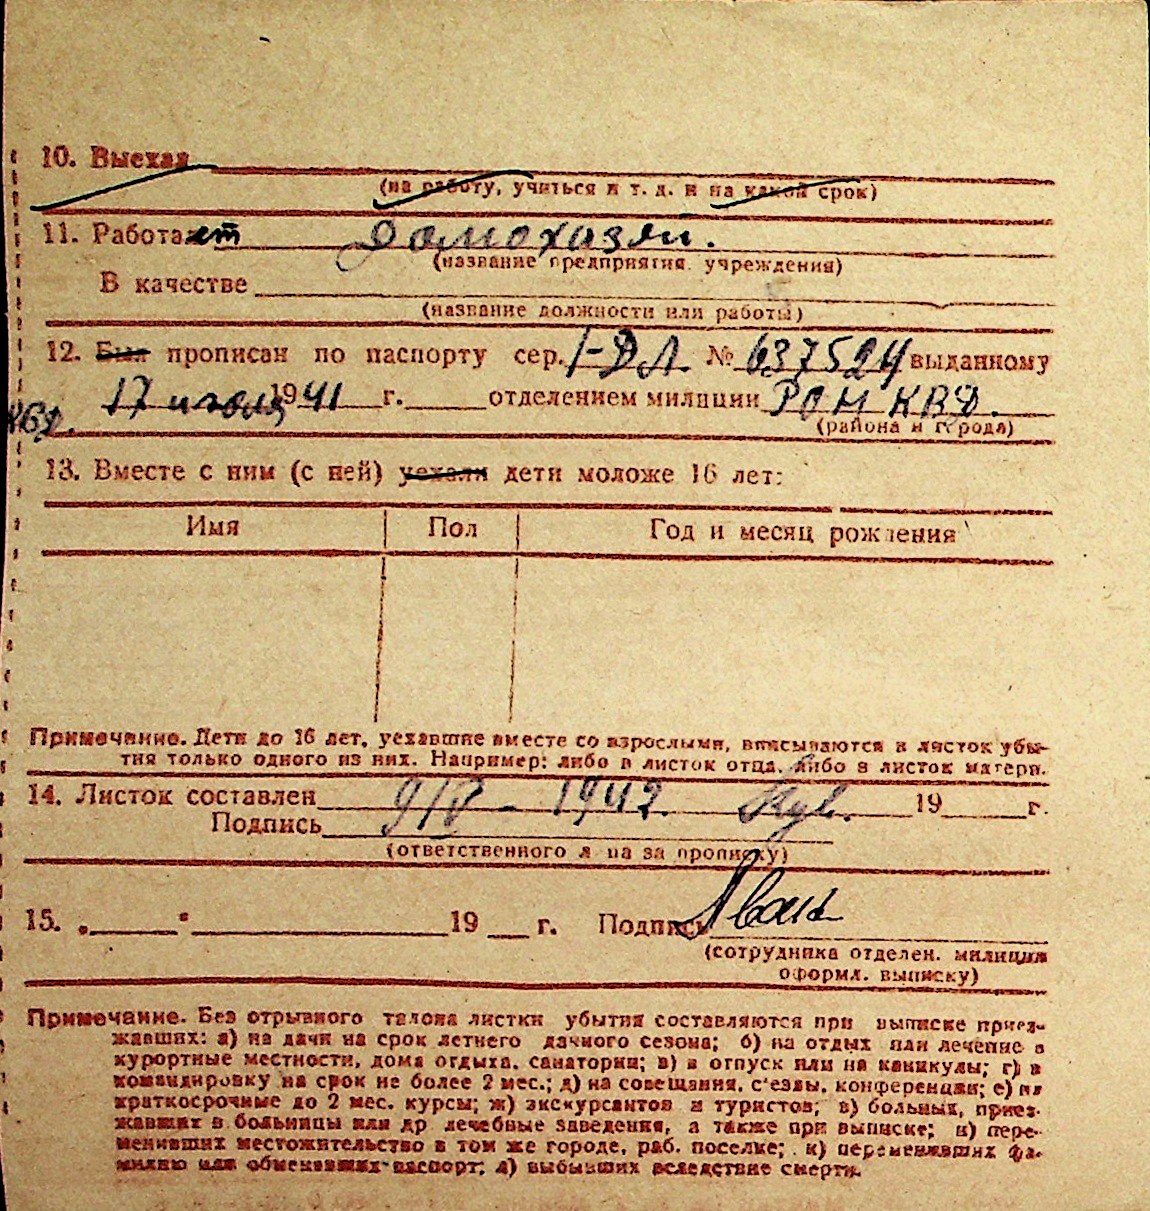 10. Выехал
(на работу, учиться и т. д. и на какой срок)
11. Работает Домохозяй.
(название предприятия, учреждения)
В качестве
(название должности или работы)
12. Был прописан по паспорту сер. I-ДЛ. № 637524 выданному
17 июля 1941 г. отделением милиции РОНКВД.
(района и города)
13. Вместе с ним (с ней) уехали дети моложе 16 лет:
Имя Пол Год и месяц рождения
Примечание. Дети до 16 лет, уехавшие вместе со взрослыми, вписываются в листок убы-
тия только одного из них. Например: либо в листок отца, либо в листок матери.
14. Листок составлен 9/V - 1942. 19 г.
Подпись
(ответственного лица за прописку)
15. „ " 19 г. Подпись
(сотрудника отделен. милиции
оформл. выписку)
Примечание. Без отрывного талона листки убытия составляются при выписке приез-
жавших: а) на дачи на срок летнего дачного сезона; б) на отдых или лечение в
курортные местности, дома отдыха, санатории; в) в отпуск или на каникулы; г) в
командировку на срок не более 2 мес.; д) на совещания, с'езды, конференции; е) на
краткосрочные до 2 мес. курсы; ж) экскурсантов и туристов; з) больных, приез-
жавших в больницы или др лечебные заведения, а также при выписке; и) пере-
менивших местожительство в том же городе, раб. поселке; к) переменивших фа-
милию или обменявших паспорт; л) выбывших вследствие смерти.